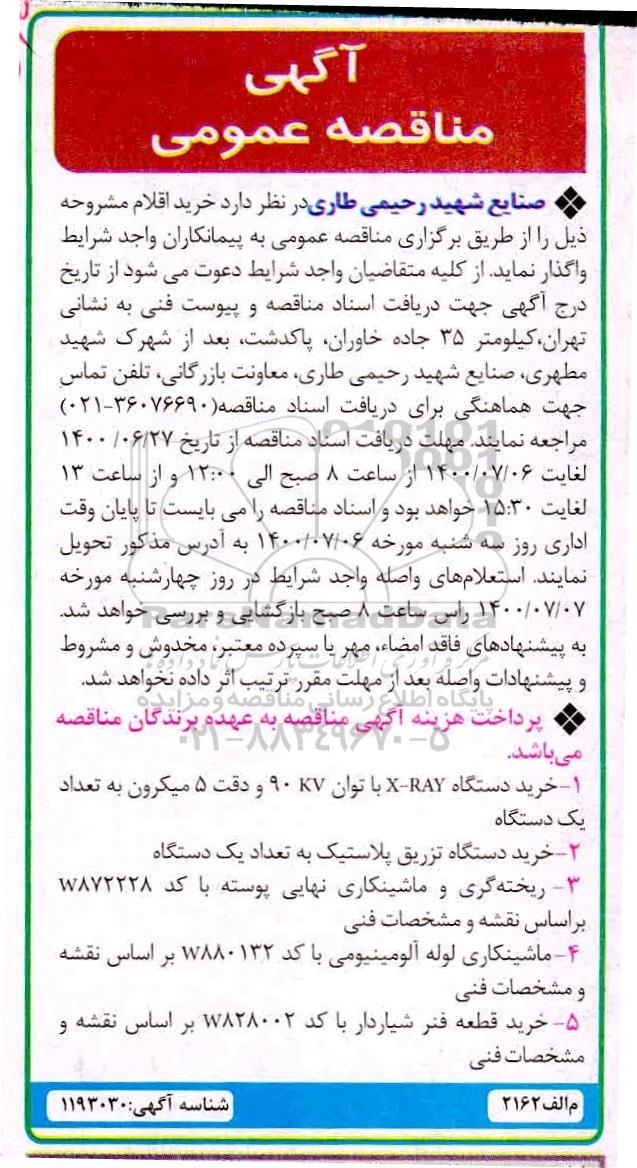 آگهی
مناقصه عمومی
❖ صنایع شهید رحیمی طاری در نظر دارد خرید اقلام مشروحه
ذیل را از طریق برگزاری مناقصه عمومی به پیمانکاران واجد شرایط
واگذار نماید. از کلیه متقاضیان واجد شرایط دعوت می شود از تاریخ
درج آگهی جهت دریافت اسناد مناقصه و پیوست فنی به نشانی
تهران،کیلومتر ۳۵ جاده خاوران، پاکدشت، بعد از شهرک شهید
مطهری، صنایع شهید رحیمی طاری، معاونت بازرگانی، تلفن تماس
جهت هماهنگی برای دریافت اسناد مناقصه(۳۶۰۷۶۶۹۰-۰۲۱)
مراجعه نمایند. مهلت دریافت اسناد مناقصه از تاریخ ۱۴۰۰/۰۶/۲۷
لغایت ۱۴۰۰/۰۷/۰۶ از ساعت ۸ صبح الی ۱۲:۰۰ و از ساعت ۱۳
لغایت ۱۵:۳۰ خواهد بود و اسناد مناقصه را می بایست تا پایان وقت
اداری روز سه شنبه مورخه ۱۴۰۰/۰۷/۰۶ به آدرس مذکور تحویل
نمایند. استعلام‌های واصله واجد شرایط در روز چهارشنبه مورخه
۱۴۰۰/۰۷/۰۷ راس ساعت ۸ صبح بازگشایی و بررسی خواهد شد.
ParsNamadData
به پیشنهادهای فاقد امضاء، مهر یا سپرده معتبر، مخدوش و مشروط
و پیشنهادات واصله بعد از مهلت مقرر ترتیب اثر داده نخواهد شد.
پایگاه اطلاع رسانی مناقصه و مزایده
❖ پرداخت هزینه آگهی مناقصه به عهده برندگان مناقصه
۰۲۱-۸۸۳۴۹۶۷۰-۵
می‌باشد.
۱-خرید دستگاه X-RAY با توان ۹۰ KV و دقت ۵ میکرون به تعداد
یک دستگاه
۲-خرید دستگاه تزریق پلاستیک به تعداد یک دستگاه
۳- ریخته‌گری و ماشینکاری نهایی پوسته با کد W۸۷۲۲۲۸
براساس نقشه و مشخصات فنی
۴-ماشینکاری لوله آلومینیومی با کد W۸۸۰۱۳۲ بر اساس نقشه
و مشخصات فنی
۵- خرید قطعه فنر شیاردار با کد W۸۲۸۰۰۲ بر اساس نقشه و
مشخصات فنی
م‌الف۲۱۶۲
شناسه آگهی:۱۱۹۳۰۳۰